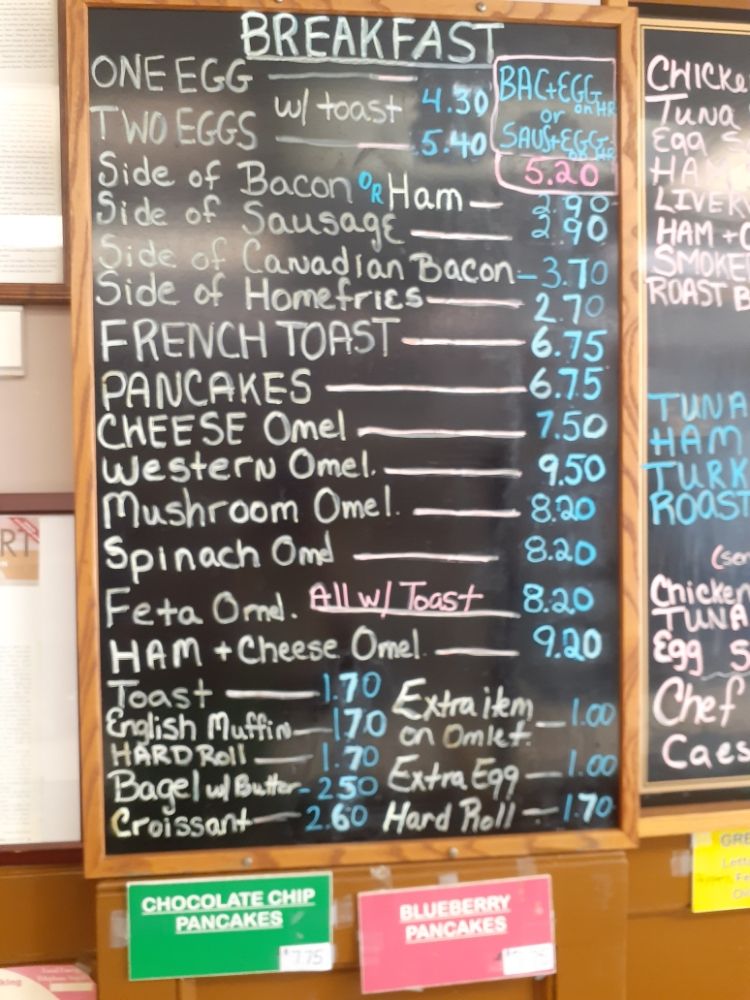 BREAKFAST
ONE EGG
w/ toast 4.30
TWO EGGS 5.40
BAC+EGG
on HR
or
SAUS+EGG
on HR
5.20
Side of Bacon OR Ham — 2.90
Side of Sausage — 2.90
Side of Canadian Bacon - 3.70
Side of Homefries — 2.70
FRENCH TOAST — 6.75
PANCAKES — 6.75
CHEESE Omel — 7.50
Western Omel. — 9.50
Mushroom Omel. — 8.20
Spinach Omel — 8.20
Feta Omel. All w/ Toast 8.20
HAM + Cheese Omel. — 9.20
Toast — 1.70
English Muffin — 1.70
HARD Roll — 1.70
Bagel w/ Butter - 2.50
Croissant — 2.60
Extra item
on Omlet. — 1.00
Extra Egg — 1.00
Hard Roll — 1.70
CHOCOLATE CHIP
PANCAKES
7.75
BLUEBERRY
PANCAKES
Tuna
Egg
HAM
HAM +
ROAST
TUNA
HAM
ROAST
Chicken
TUNA
Egg
Chef